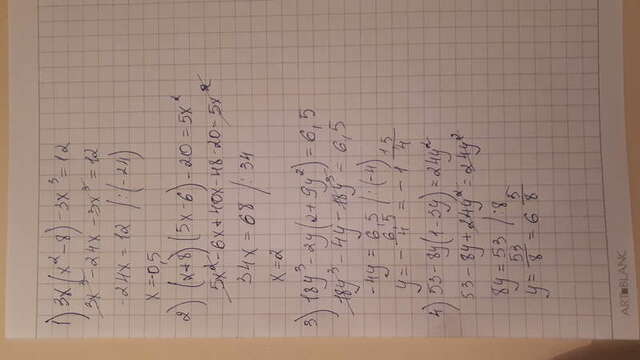 1) 3x(x²-8) -3x³=12
3x³-24x-3x³=12
-24x=12 /:(-24)
x=-0,5
2) (x+8)(5x-6)-20=5x²
5x²-6x+40x-48-20=5x²
34x=68 /:34
x=2
3) 18y³-2y(2+9y²)=6,5
18y³-4y-18y³=6,5
-4y=6,5 /:(-4)
y=-6,5/4=-1 15/4
4) 53-8y(1-3y)=24y²
53-8y+24y²=24y²
8y=53 /:8
y=53/8=6 5/8
ART BLANC